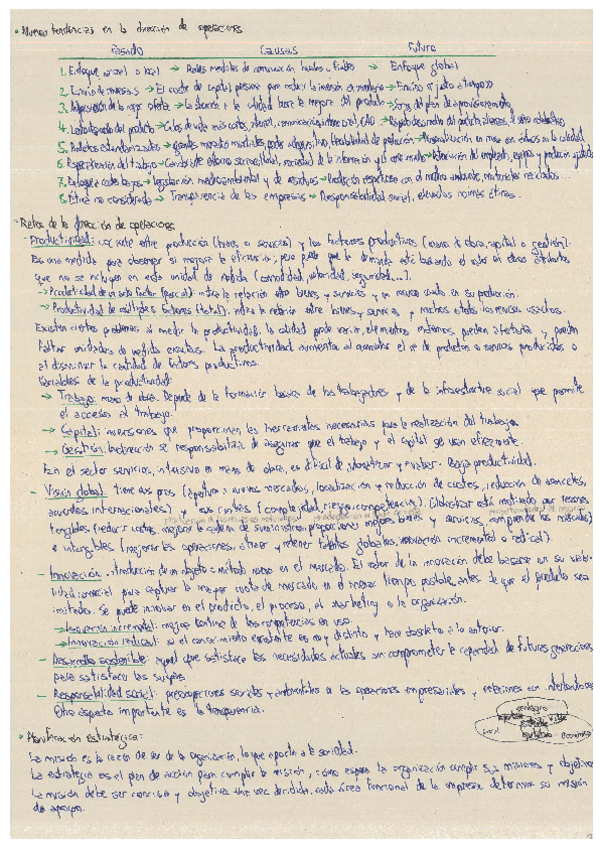 · Nuevas tendencias en la dirección de operaciones
Pasado Causas Futuro
1. Enfoque nacional o local → Redes mundiales de comunicación, baratas y fiables → Enfoque global
2. Envío de masas → El coste de capital presiona para reducir la inversión en inventario → Envíos "justo a tiempo"
3. Adquisición de la mejor oferta → La atención a la calidad hace la mejora del producto → Socios del plan de aprovisionamiento
4. Lento desarrollo del producto → Ciclos de vida más cortos, internet, comunicación internacional, CAD → Rápido desarrollo del producto, alianzas,
5. Productos estandarizados → grandes mercados mundiales, flexibilidad de producción → Personalización en masa con énfasis en la calidad
6. Especialización del trabajo → Cambios de entorno sociocultural, sociedad de la información y la
7. Enfoque a costes bajos → legislación medioambiental y de residuos → Producción respetuosa con el medio ambiente, materiales reciclados...
8. Ética no considerada → Transparencia de las empresas → Responsabilidad social, elevadas normas éticas.
· Retos de la dirección de operaciones
- Productividad: cociente entre producción (bienes o servicios) y los factores productivos (mano de obra, capital o gestión).
Es una medida para observar si mejora la eficiencia; pero puede que la demanda esté basando el valor en otros atributos
que no se incluyen en esta unidad de medida (comodidad, seguridad...).
→ Productividad de un solo factor (parcial): indica la relación entre bienes y servicios y un recurso usado en su producción.
→ Productividad de múltiples factores (total): indica la relación entre bienes y servicios y muchos o todos los recursos usados.
Existen ciertos problemas al medir la productividad: la calidad puede variar, elementos externos pueden afectarla y pueden
faltar unidades de medida exactas. La productividad aumenta al aumentar el nº de productos o servicios producidos o
al disminuir la cantidad de factores productivos.
Variables de la productividad:
→ Trabajo: mano de obra. Depende de la formación básica de los trabajadores y de la infraestructura social que permite
el acceso al trabajo.
→ Capital: inversiones que proporcionan las herramientas necesarias para la realización del trabajo.
→ Gestión: la dirección se responsabiliza de asegurar que el trabajo y el capital se usan eficazmente.
En el sector servicios, intensivo en mano de obra, es difícil de y evaluar. Baja productividad.
- Visión global: tiene sus pros (apertura a nuevos mercados, localización y reducción de costes, reducción de aranceles,
acuerdos internacionales) y sus contras (complejidad, riesgo, competencia). Globalizar está motivado por razones
tangibles (reducir costes, mejorar la cadena de suministros, proporcionar mejores bienes y servicios, comprender los mercados)
e intangibles (mejorar las operaciones, atraer y retener talentos globales, innovación incremental o radical).
- Innovación: introducción de un objeto o método nuevo en el mercado. El valor de la innovación debe basarse en su
comercial para capturar la mayor cuota de mercado en el menor tiempo posible, antes de que el producto sea
imitado. Se puede innovar en el producto, el proceso, el marketing o la organización.
→ Innovación incremental: mejora continua de las competencias en uso.
→ Innovación radical: el conocimiento existente es muy distinto y hace obsoleto a lo anterior.
- Desarrollo sostenible: aquel que satisface las necesidades actuales sin comprometer la capacidad de futuras generaciones
para satisfacer las suyas.
- Responsabilidad social: preocupaciones sociales y ambientales a las operaciones empresariales y relaciones con interlocutores.
Otro aspecto importante es la transparencia.
ecológico
social
económico
· Planificación estratégica:
La misión es la razón de ser de la organización, lo que aporta a la sociedad.
La estrategia es el plan de acción para cumplir la misión, cómo espera la organización cumplir sus misiones y objetivos
La misión debe ser concisa y objetiva una vez decidida, cada área funcional de la empresa determina su misión
de apoyo.